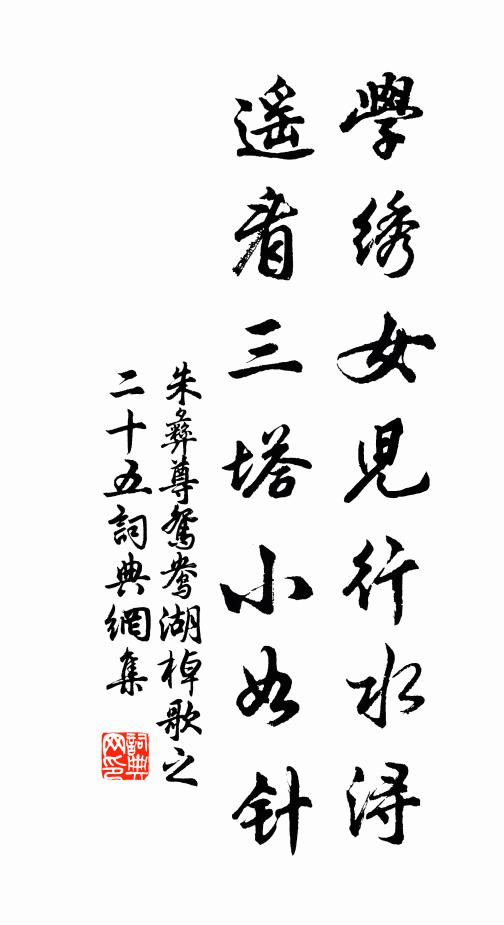 學绣女兒行水浔
遥看三塔小如针
朱彝尊鴛鴦湖棹歌之
二十五詞典網集
詞典网印